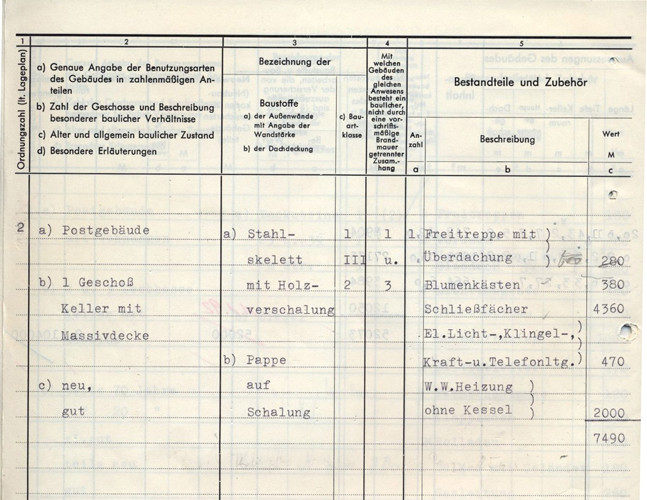 1 2 3 4 5
Ordnungszahl (lt. Lageplan)
a) Genaue Angabe der Benutzungsarten
des Gebäudes in zahlenmäßigen An-
teilen
b) Zahl der Geschosse und Beschreibung
besonderer baulicher Verhältnisse
c) Alter und allgemein baulicher Zustand
d) Besondere Erläuterungen
Bezeichnung der
Baustoffe
a) der Außenwände
mit Angabe der
Wandstärke
b) der Dachdeckung
c) Bau-
art-
klasse
Mit
welchen
Gebäuden
des
gleichen
Anwesens
besteht ein
baulicher,
nicht durch
eine vor-
schrifts-
mäßige
Brand-
mauer
getrennter
Zusam.-
hang
Bestandteile und Zubehör
An-
zahl
a
Beschreibung
b
Wert
M
c
2 a) Postgebäude a) Stahl- 1 1 1 Freitreppe mit )
skelett III u. Überdachung ) 280
b) 1 Geschoß mit Holz- 2 3 Blumenkästen 380
Keller mit verschalung Schließfächer 4360
Massivdecke El.Licht-,Klingel-,)
b) Pappe Kraft-u.Telefonltg.) 470
c) neu, auf W.W.Heizung )
gut Schalung ohne Kessel ) 2000
7490